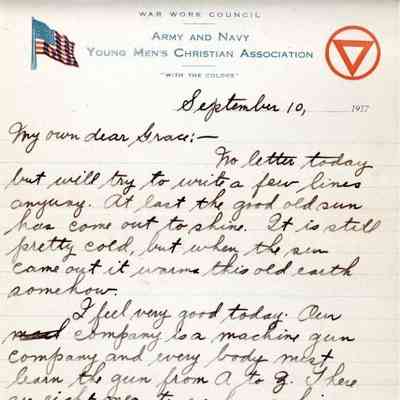 WAR WORK COUNCIL
ARMY AND NAVY
YOUNG MEN'S CHRISTIAN ASSOCIATION
"WITH THE COLORS"
September 10, 1917
My own dear Grace:—
No letter today
but will try to write a few lines
anyway. At last the good old sun
has come out to shine. It is still
pretty cold, but when the sun
came out it warms this old earth
somehow.
I feel very good today. Our
company is a machine gun
company and every body must
learn the gun from A to Z. There